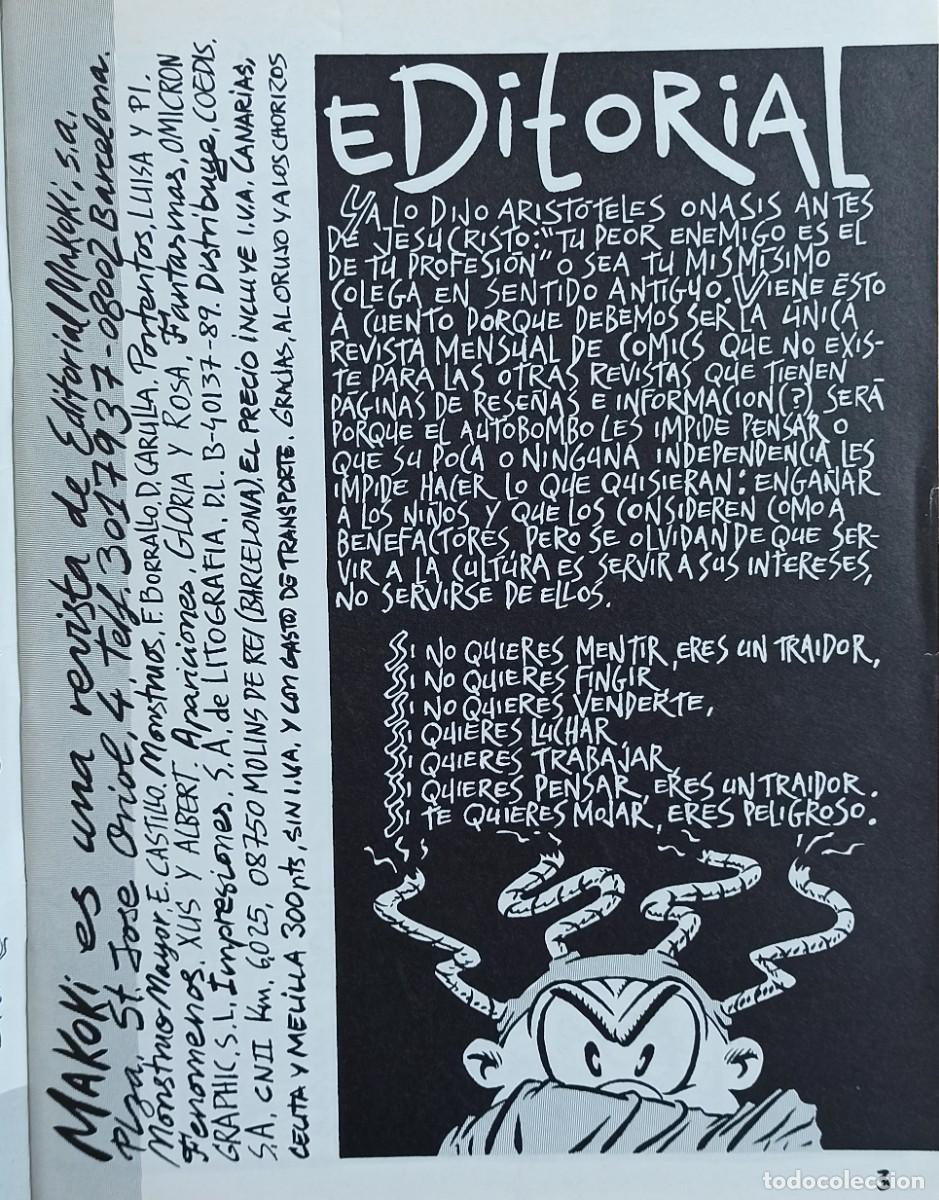 MAKOKI es una revista de Editorial MAKOKI, s.a.
Plza. St. Jose Oriol, 4. Telf. 3017937-08002 Barcelona.
Monstruo Mayor, E. CASTILLO. Monstruos, F. BORRALLO, D. CARULLA. Portentos, LUISA Y PI.
Fenomenos. XUS Y ALBERT. Apariciones, GLORIA Y ROSA. Fantasmas, OMICRON
GRAPHIC, S.L. Impresiones. S.A. de LITOGRAFIA. D.L. B-40137-89. Distribuye, COEDIS.
S.A. CNII Km. 6,025, 08750 MOLINS DE REI (BARCELONA). EL PRECIO INCLUYE I.V.A. CANARIAS,
CEUTA Y MELILLA 300 pts, SIN I.V.A. Y CON GASTO DE TRANSPORTE. GRACIAS, AL ORUJO Y A LOS CHORIZOS
EDitORiAL
YA LO DIJO ARISTÓTELES ONASIS ANTES
DE JESUCRISTO: "TU PEOR ENEMIGO ES EL
DE TU PROFESIÓN" O SEA TU MISMÍSIMO
COLEGA EN SENTIDO ANTIGUO. VIENE ÉSTO
A CUENTO PORQUE DEBEMOS SER LA ÚNICA
REVISTA MENSUAL DE COMICS QUE NO EXIS-
TE PARA LAS OTRAS REVISTAS QUE TIENEN
PÁGINAS DE RESEÑAS E INFORMACION(?) SERÁ
PORQUE EL AUTOBOMBO LES IMPIDE PENSAR O
QUE SU POCA O NINGUNA INDEPENDENCIA LES
IMPIDE HACER LO QUE QUISIERAN: ENGAÑAR
A LOS NIÑOS Y QUE LOS CONSIDEREN COMO A
BENEFACTORES, PERO SE OLVIDAN DE QUE SER-
VIR A LA CULTURA ES SERVIR A SUS INTERESES,
NO SERVIRSE DE ELLOS.
SI NO QUIERES MENTIR, ERES UN TRAIDOR,
SI NO QUIERES FINGIR,
SI NO QUIERES VENDERTE,
SI QUIERES LUCHAR
SI QUIERES TRABAJAR,
SI QUIERES PENSAR, ERES UN TRAIDOR.
SI TE QUIERES MOJAR, ERES PELIGROSO.
3
todocoleccion